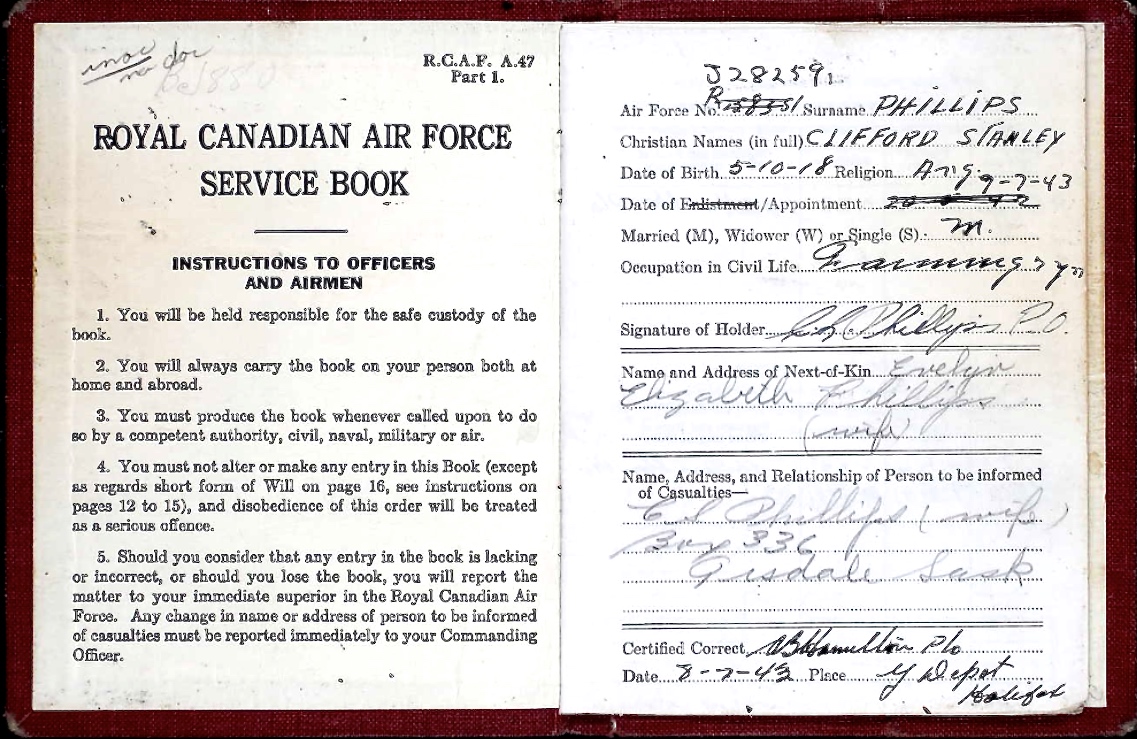 inoc
no doc
R.C.A.F. A.47
Part 1.
ROYAL CANADIAN AIR FORCE
SERVICE BOOK
INSTRUCTIONS TO OFFICERS
AND AIRMEN
1. You will be held responsible for the safe custody of the
book.
2. You will always carry the book on your person both at
home and abroad.
3. You must produce the book whenever called upon to do
so by a competent authority, civil, naval, military or air.
4. You must not alter or make any entry in this Book (except
as regards short form of Will on page 16, see instructions on
pages 12 to 15), and disobedience of this order will be treated
as a serious offence.
5. Should you consider that any entry in the book is lacking
or incorrect, or should you lose the book, you will report the
matter to your immediate superior in the Royal Canadian Air
Force. Any change in name or address of person to be informed
of casualties must be reported immediately to your Commanding
Officer.
J28259
Air Force No. Surname PHILLIPS
Christian Names (in full) CLIFFORD STANLEY
Date of Birth 5-10-18 Religion Ang.
9-7-43
Date of Enlistment/Appointment
Married (M), Widower (W) or Single (S) M.
Occupation in Civil Life Farming
Signature of Holder CS Phillips P.O.
Name and Address of Next-of-Kin Evelyn
Elizabeth Phillips
(wife)
Name, Address, and Relationship of Person to be informed
of Casualties—
E Phillips (wife)
Box 336
Tisdale Sask
Certified Correct Hamilton P/o
Date Place Y Depot
Halifax